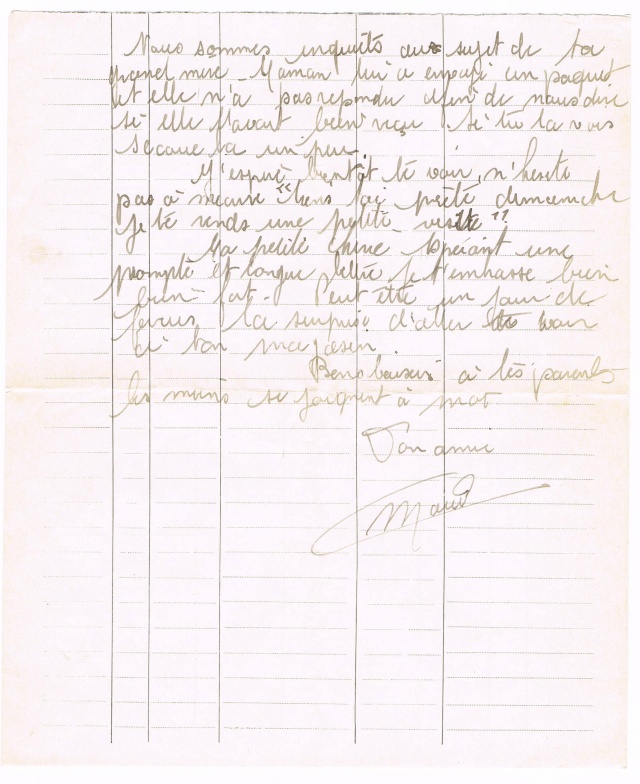 Nous sommes inquiets au sujet de ta
grand mère - Maman lui a envoyé un paquet
et elle n'a pas repondu afin de nous dire
si elle l'avait bien reçu si tu la vois
secoue la un peu.
J'espère bientôt te voir, n'hesite
pas à m'ecrire "tiens toi prête dimanche
je te rends une petite visite"
Ma petite chérie espérant une
prompte et longue lettre je t'embrasse bien
bien fort - Peut être un jour de
ferais la surprise d'aller te voir
à ton magasin.
Bons baisers à tes parents
les miens se joignent à moi
Ton amie
Maud